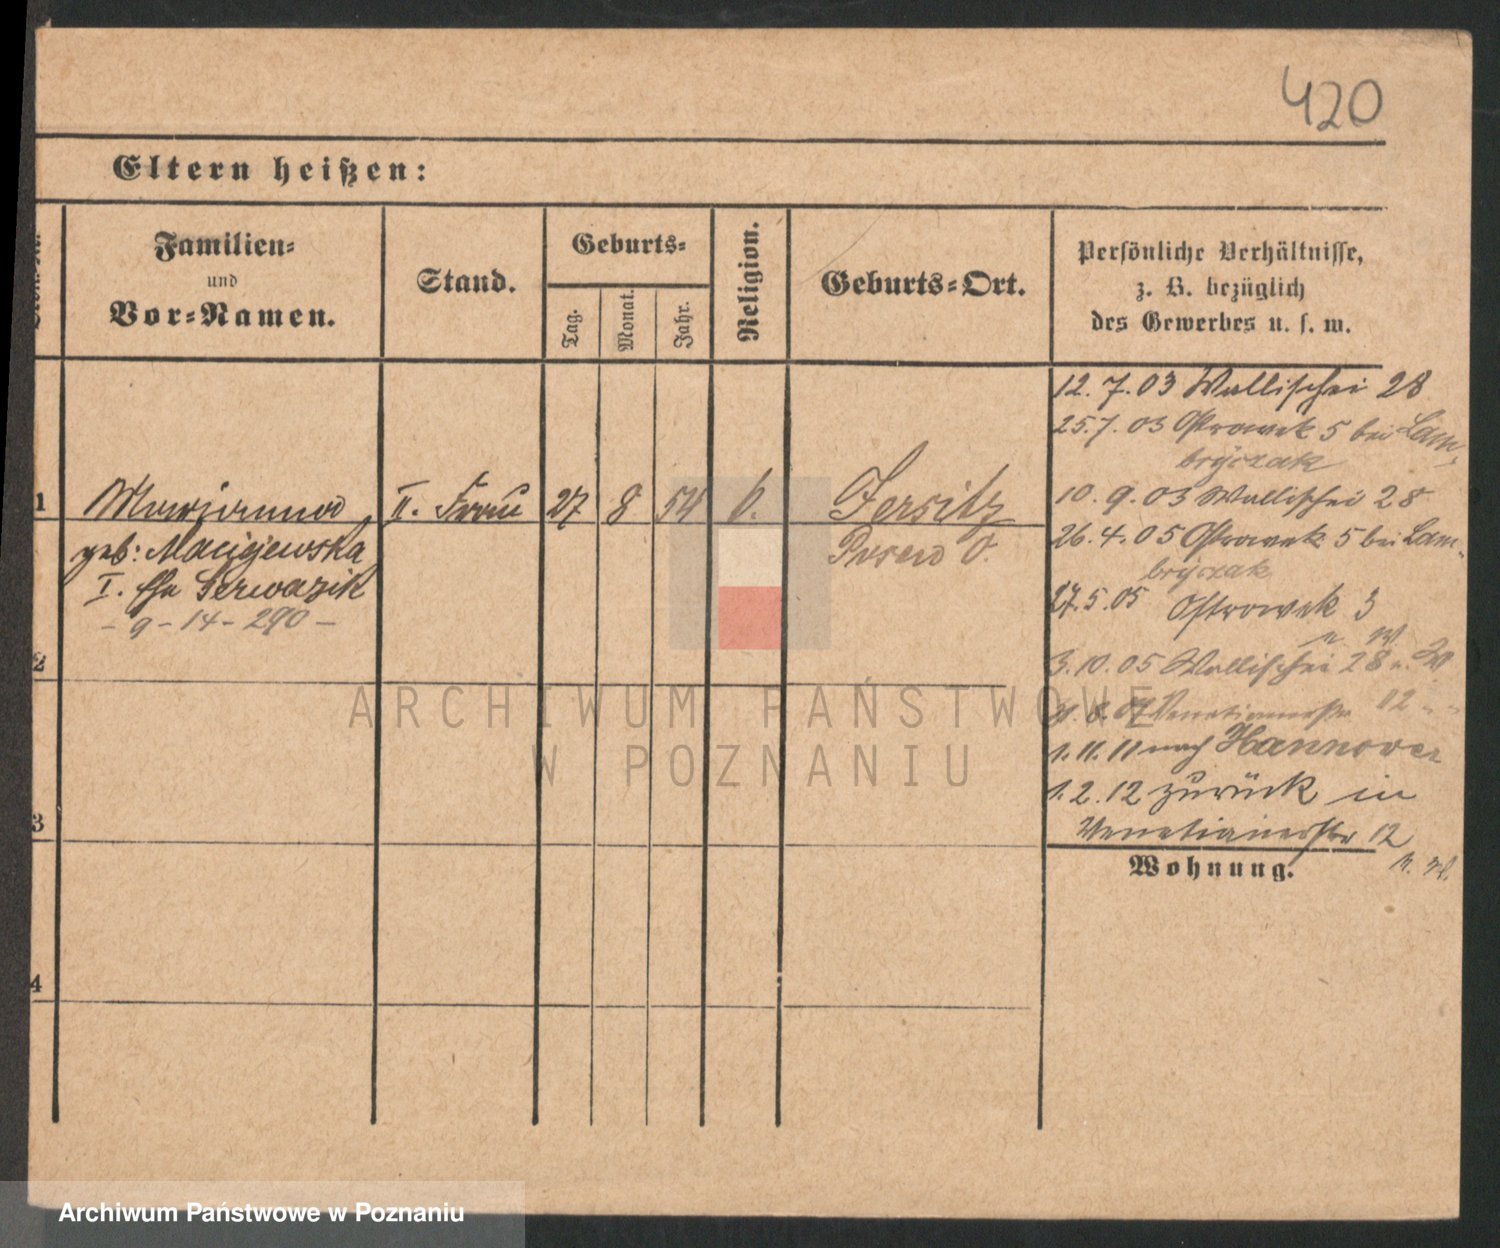 420
Eltern heißen:
Familien-
und
Vor-Namen.
Stand.
Geburts-
Tag.
Monat.
Jahr.
Religion.
Geburts-Ort.
Persönliche Verhältnisse,
z. B. bezüglich
des Gewerbes u. s. w.
12.7.03 Wallischei 28
25.7.03 Ostrowek 5 bei Lam-
bryczak
10.9.03 Wallischei 28
26.4.05 Ostrowek 5 bei Lam-
bryczak
27.5.05 Ostrowek 3
3.10.05 Wallischei 28
Venetianerstr 12
1.11.11 nach Hannover
1.2.12 zurück in
Venetianerstr 12
Wohnung.
1 Marianna II. Frau 27 8 54 k. Jersitz
geb: Maciejewska Posen O.
I. Ehe Serwazik
- 9 - 14 - 290 -
2
3
4
ARCHIWUM PAŃSTWOWE
W POZNANIU
Archiwum Państwowe w Poznaniu